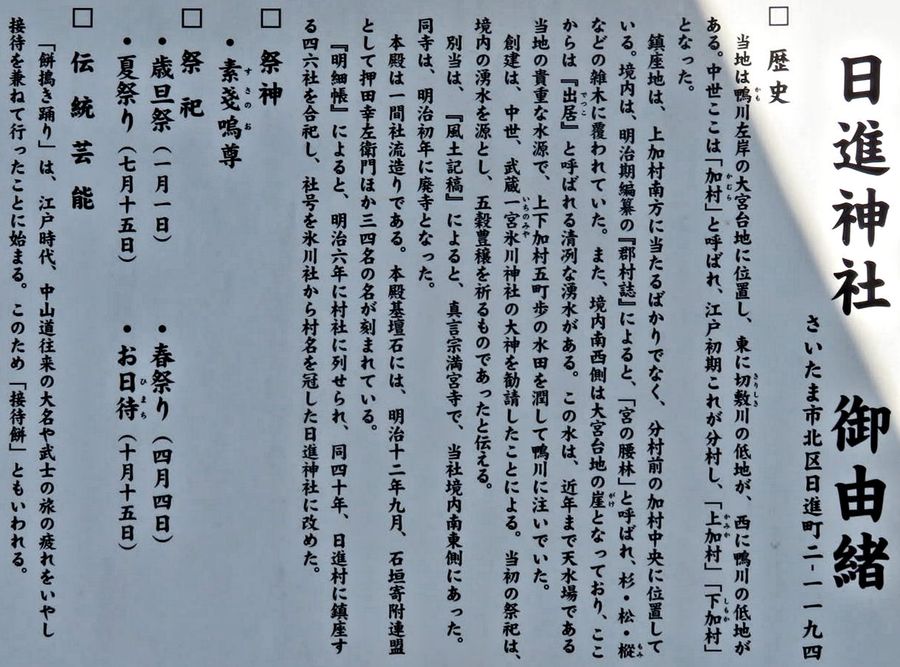 日進神社　御由緒
さいたま市北区日進町二-一一九四
□ 歴史
当地は鴨川左岸の大宮台地に位置し、東に切敷川の低地が、西に鴨川の低地が
ある。中世ここは「加村」と呼ばれ、江戸初期これが分村し、「上加村」「下加村」
となった。
鎮座地は、上加村南方に当たるばかりでなく、分村前の加村中央に位置して
いる。境内は、明治期編纂の『郡村誌』によると、「宮の腰林」と呼ばれ、杉・松・樅
などの雑木に覆われていた。また、境内南西側は大宮台地の崖となっており、ここ
からは『出居』と呼ばれる清冽な湧水がある。この水は、近年まで天水場である
当地の貴重な水源で、上下加村五町歩の水田を潤して鴨川に注いでいた。
創建は、中世、武蔵一宮氷川神社の大神を勧請したことによる。当初の祭祀は、
境内の湧水を源とし、五穀豊穣を祈るものであったと伝える。
別当は、『風土記稿』によると、真言宗満宮寺で、当社境内南東側にあった。
同寺は、明治初年に廃寺となった。
本殿は一間社流造りである。本殿基壇石には、明治十二年九月、石垣寄附連盟
として押田幸左衛門ほか三四名の名が刻まれている。
『明細帳』によると、明治六年に村社に列せられ、同四十年、日進村に鎮座す
る四六社を合祀し、社号を氷川社から村名を冠した日進神社に改めた。
□ 祭神
・素戔嗚尊
□ 祭祀
・歳旦祭（一月一日）　・春祭り（四月四日）
・夏祭り（七月十五日）　・お日待（十月十五日）
□ 伝統芸能
「餅搗き踊り」は、江戸時代、中山道往来の大名や武士の旅の疲れをいやし
接待を兼ねて行ったことに始まる。このため「接待餅」ともいわれる。